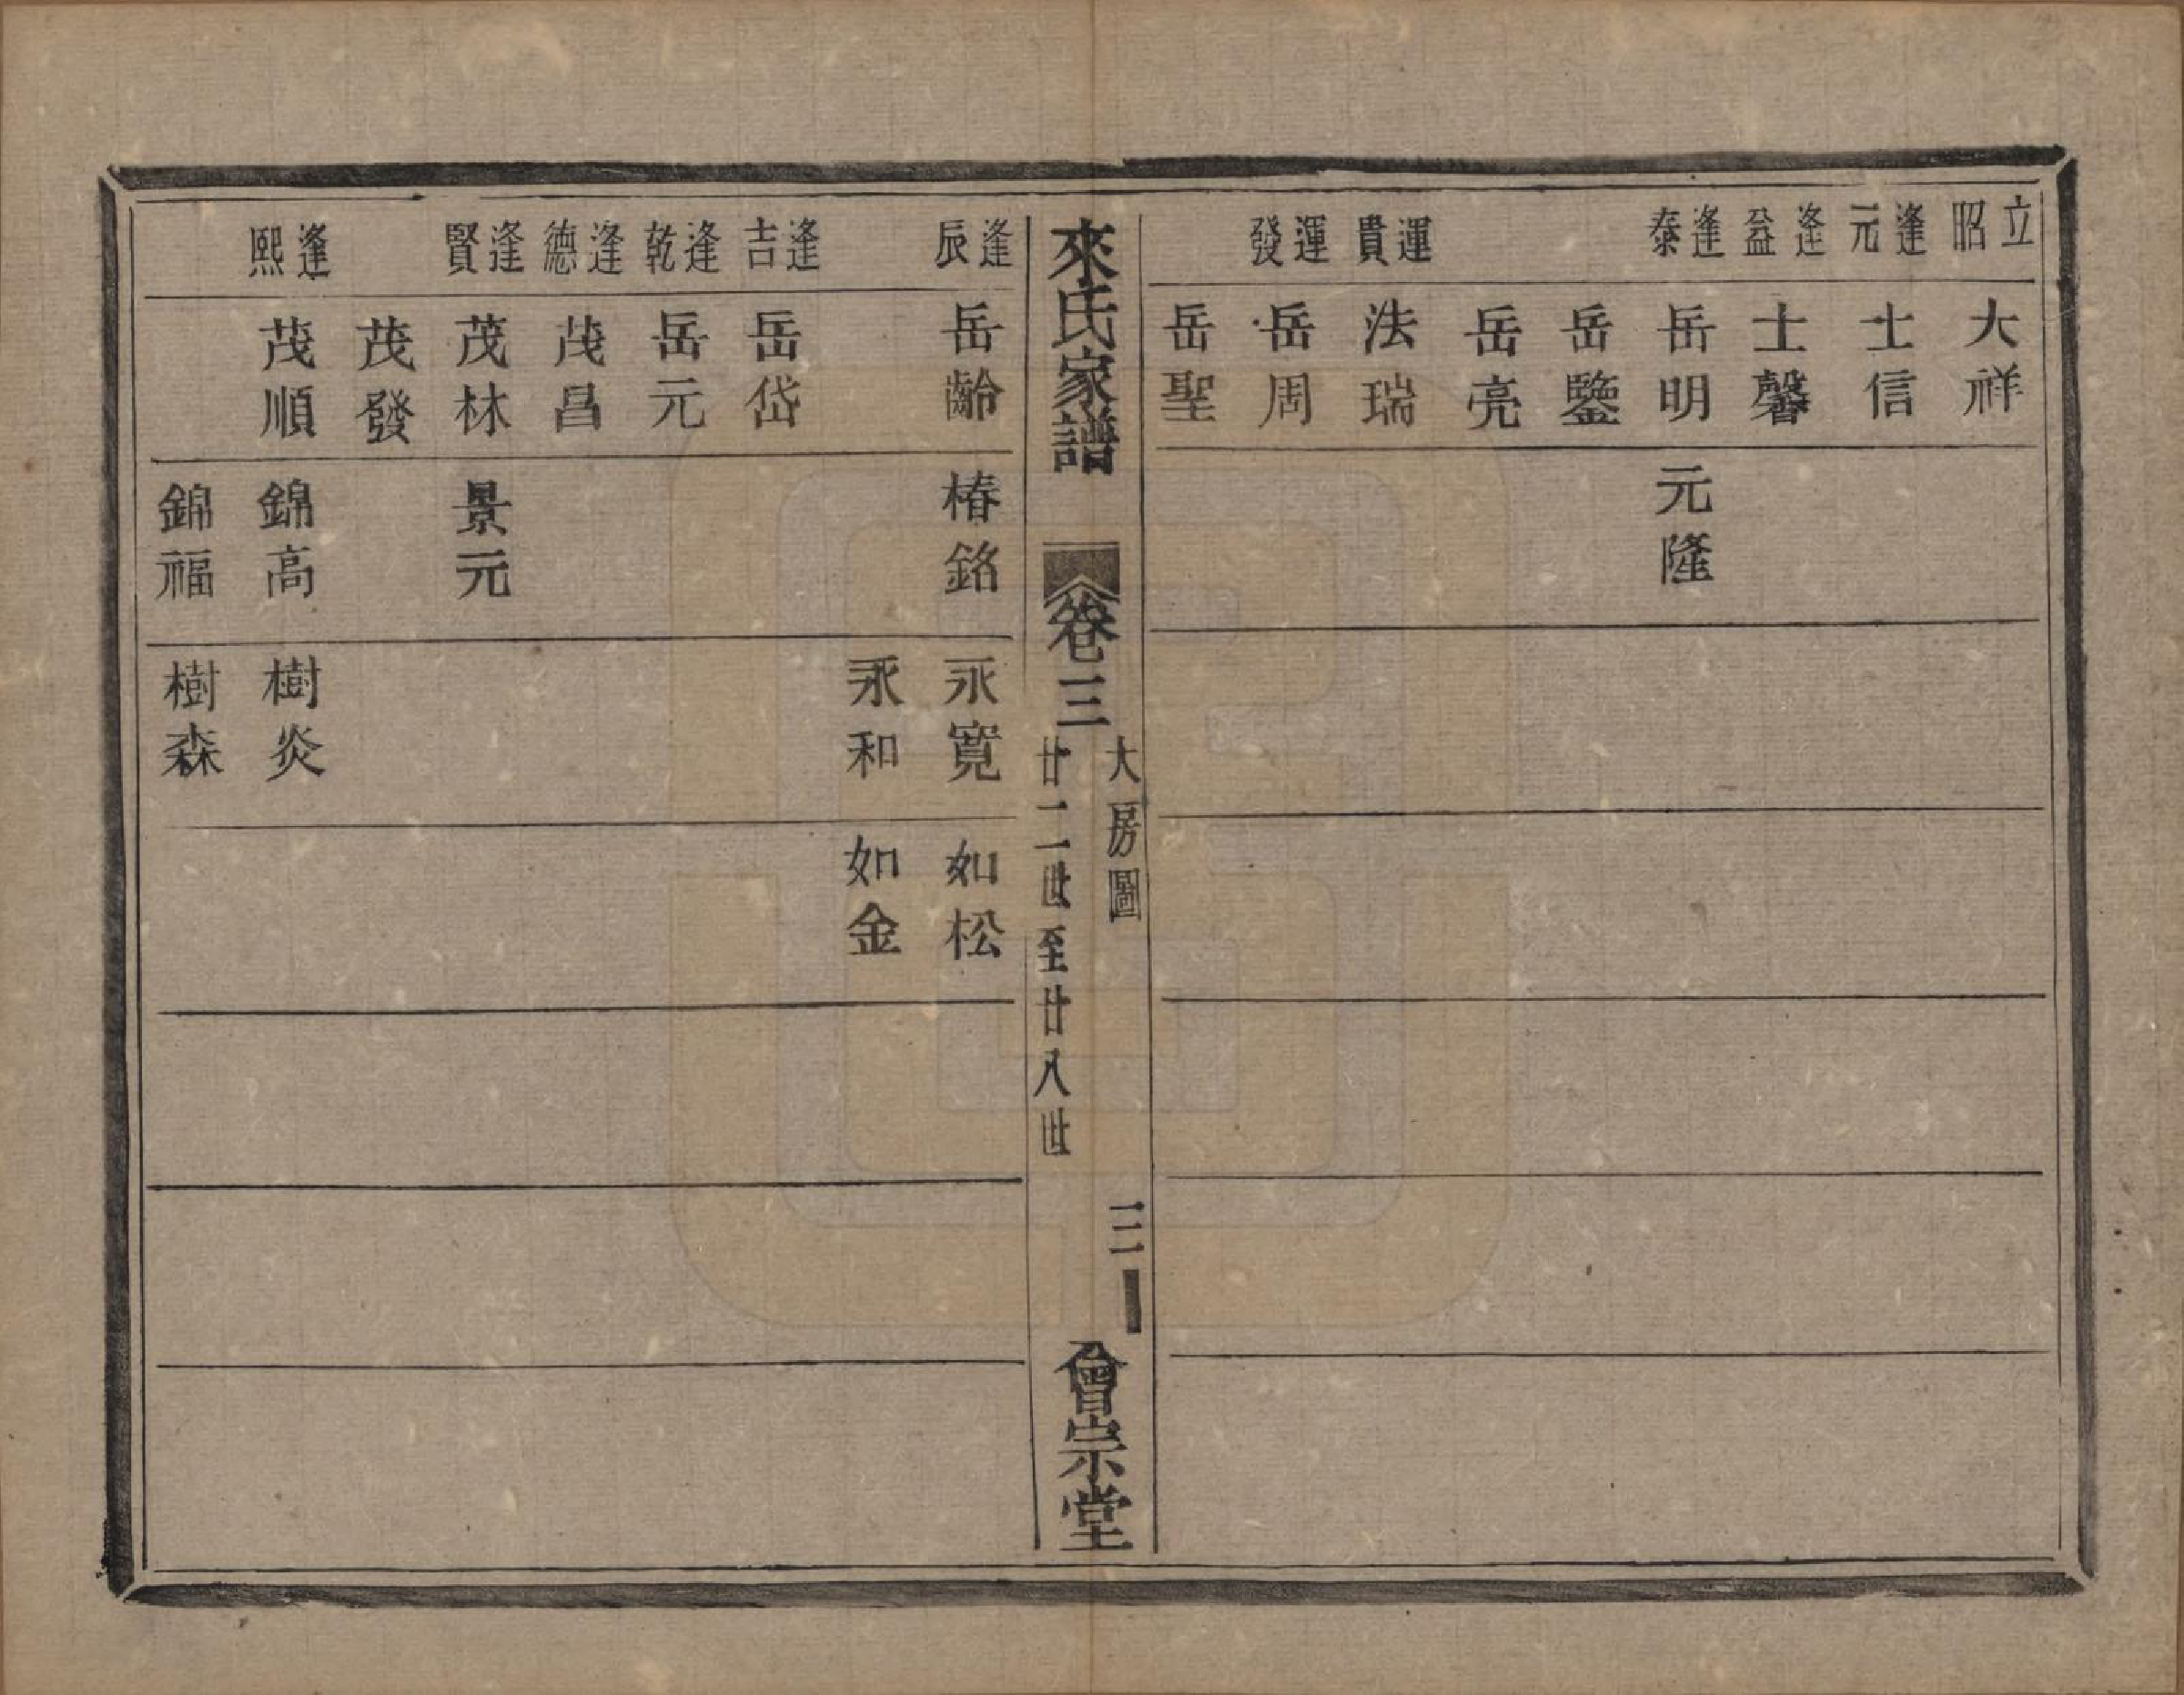 立昭
逢元
逢益
逢泰
運貴
運發
大祥
士信
士馨
岳明
岳鑒
岳亮
法瑞
岳周
岳聖
元隆
來氏家譜
卷三
大房圖
廿二世至廿八世
三
會宗堂
逢辰
逢吉
逢乾
逢德
逢賢
逢熙
岳齡
岳岱
岳元
茂昌
茂林
茂發
茂順
椿銘
景元
錦高
錦福
永寬
永和
樹炎
樹森
如松
如金